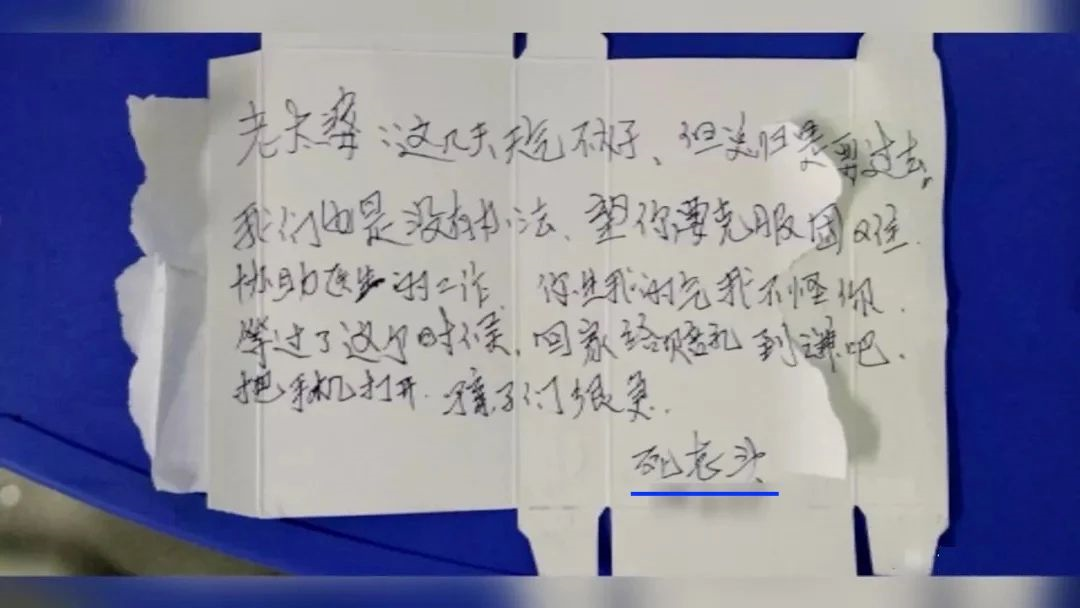 老太婆：这几天天气不好、但总归是要过去。
我们也是没有办法、望你要克服困难.
协助医生的工作. 你生我的气我不怪你.
等过了这个时候, 回家给你赔礼到歉吧.
把手机打开. 孩子们很急.
死老头